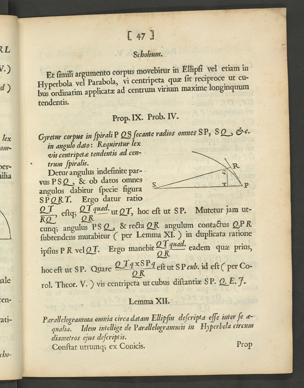 [ 47 ]
Scholium.
Et simili argumento corpus movebitur in Ellipsi vel etiam in
Hyperbola vel Parabola, vi centripeta quæ sit reciproce ut cu-
bus ordinatim applicatæ ad centrum virium maxime longinquum
tendentis.
Prop. IX. Prob. IV.
Gyretur corpus in spirali PQS secante radios omnes SP, SQ, &c.
in angulo dato: Requiritur lex
vis centripetæ tendentis ad cen-
trum spiralis.
Detur angulus indefinite par-
vus PSQ, & ob datos omnes
angulos dabitur specie figura
SPQRT. Ergo datur ratio
QT/RQ, estq; QT quad./QR ut QT, hoc est ut SP. Mutetur jam ut-
cunq; angulus PSQ, & recta QR angulum contactus QPR
subtendens mutabitur (per Lemma XI.) in duplicata ratione
ipsius PR vel QT. Ergo manebit QT quad./QR eadem quæ prius,
hoc est ut SP. Quare QTq × SPq/QR est ut SP cub. id est (per Co-
rol. Theor. V.) vis centripeta ut cubus distantiæ SP. Q. E. I.
Lemma XII.
Parallelogramma omnia circa datam Ellipsin descripta esse inter se æ-
qualia. Idem intellige de Parallelogrammis in Hyperbola circum
diametros ejus descriptis.
Constat utrumq; ex Conicis.
Prop
S
Q
R
T
P
RL
V.)
lex